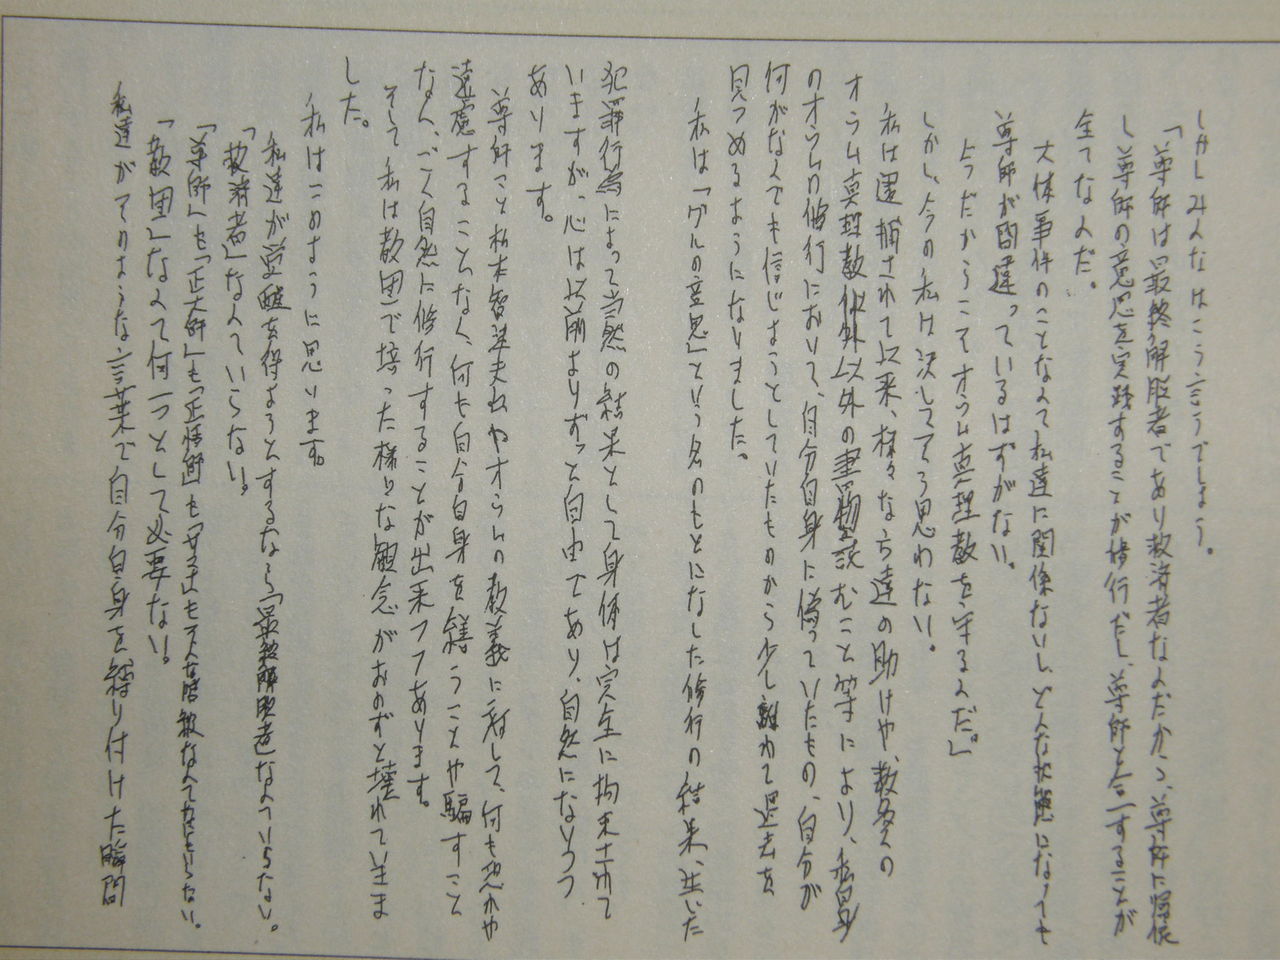 しかしみんなはこう言うでしょう。
「尊師は最終解脱者であり救済者なんだから、尊師に帰依
し尊師の意思を実践することが修行だし、尊師と合一することが
全てなんだ。
大体事件のことなんて私達に関係ないし、どんな状態になっても
尊師が間違っているはずがない。
今だからこそオウム真理教を守るんだ。」
しかし、今の私は決してそう思わない。
私は逮捕されて以来、様々な方達の助けや、数多くの
オウム真理教以外の書物を読むこと等により、私自身
のオウムの修行において、自分自身に偽っていたもの、自分が
何がなんでも信じようとしていたものから少し離れて過去を
見つめるようになりました。
私は「グルの意思」という名のもとになした修行の結果、
犯罪行為によって当然の結果として身体は完全に拘束されて
いますが、心は以前よりずっと自由であり、自然になりつつ
あります。
尊師こと松本智津夫氏やオウムの教義に対して、何も恐れや
遠慮することなく、何も自分自身を繕うことや騙すこと
なく、ごく自然に修行することが出来つつあります。
そして私は教団で培った様々な観念がおのずと壊れていきま
した。
私はこのように思います。
私達が覚醒を得ようとするなら「最終解脱者」なんていらない。
「救済者」なんていらない。
「尊師」も「正大師」も「正悟師」も
「教団」なんて何一つとして必要ない。
私達がそのような言葉で自分自身を縛り付けた瞬間